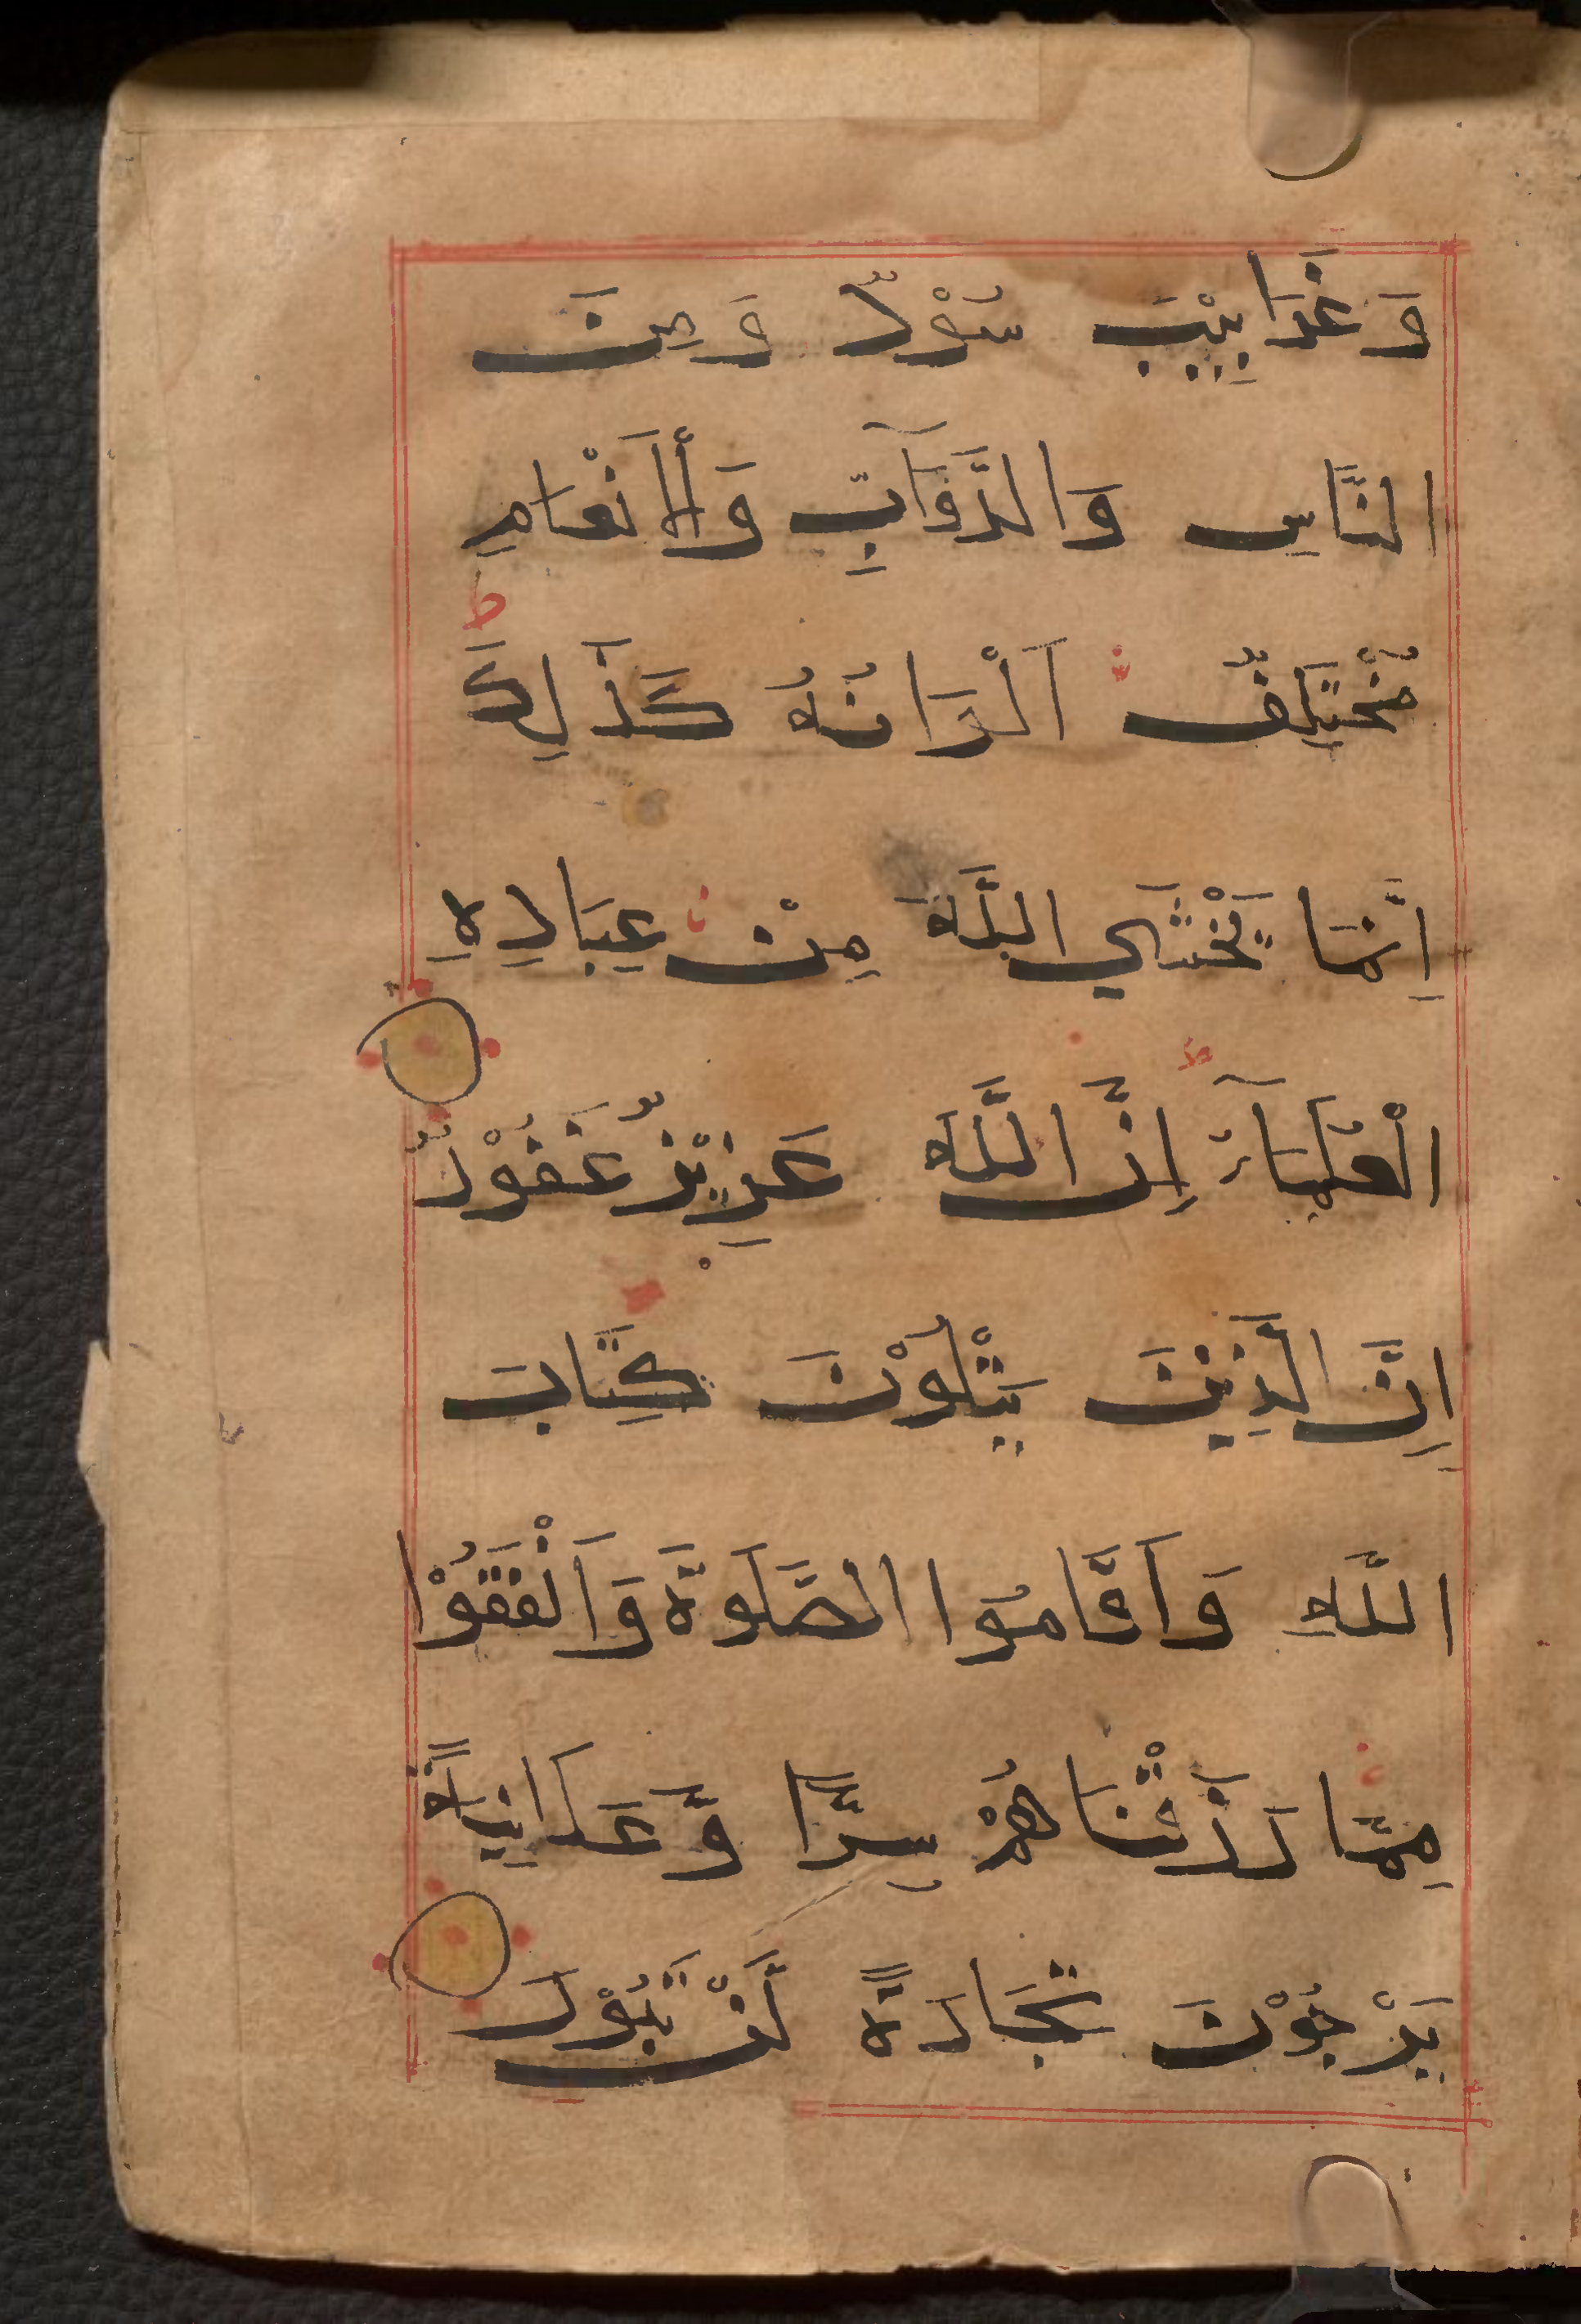 وَغَرَابِيْبُ سُوْدٌ وَمِنَ
النَّاسِ وَالدَّوَآبِّ وَالْاَنْعَامِ
مُخْتَلِفٌ اَلْوَانُهُ كَذَلِكَ ط
اِنَّمَا يَخْشَي اللَّهَ مِنْ عِبَادِهِ
الْعُلَمَآءُ ط اِنَّ اللَّهَ عَزِيْزٌ غَفُوْرٌ
اِنَّ الَّذِيْنَ يَتْلُوْنَ كِتَابَ
اللَّهِ وَاَقَامُوا الصَّلَوةَ وَاَنْفَقُوْا
مِمَّا رَزَقْنَاهُمْ سِرًّا وَّعَلَانِيَةً
يَرْجُوْنَ تِجَارَةً لَّنْ تَبُوْرَ